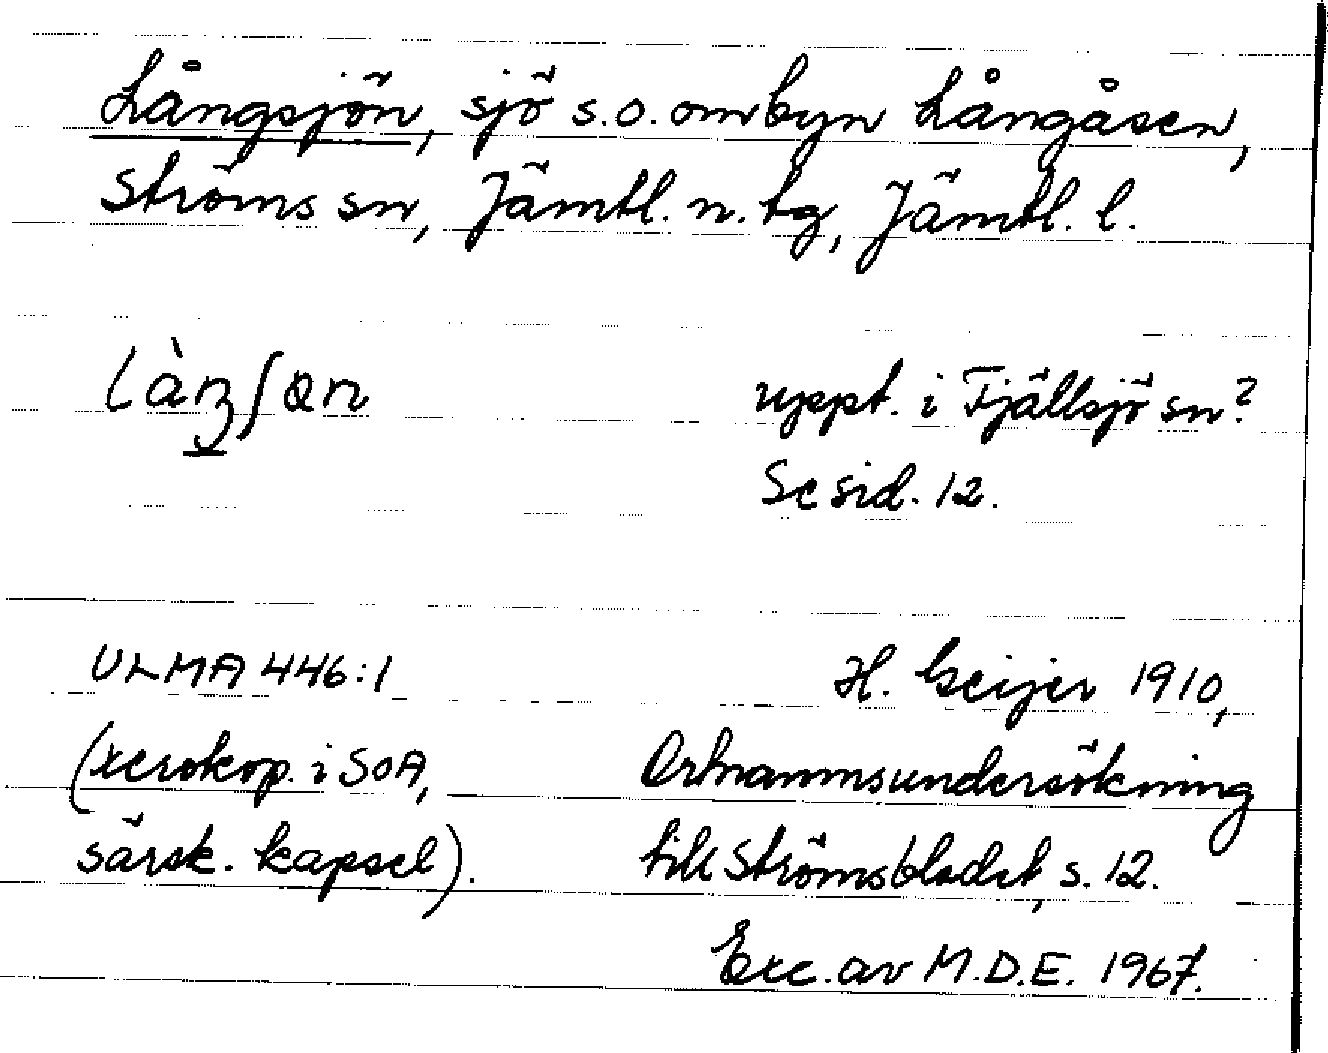 Långsjön, sjö s.o. om byn Långåsen,
Ströms sn, Jämtl. n. tg, Jämtl. l.
uppt. i Fjällsjö sn?
Se sid. 12.
ULMA 446:1
H. Geijer 1910,
(xerokop. i SOA,
Ortnamnsundersökning
särsk. kapsel).
till Strömsbladet, s. 12.
Exc. av M.D.E. 1967.